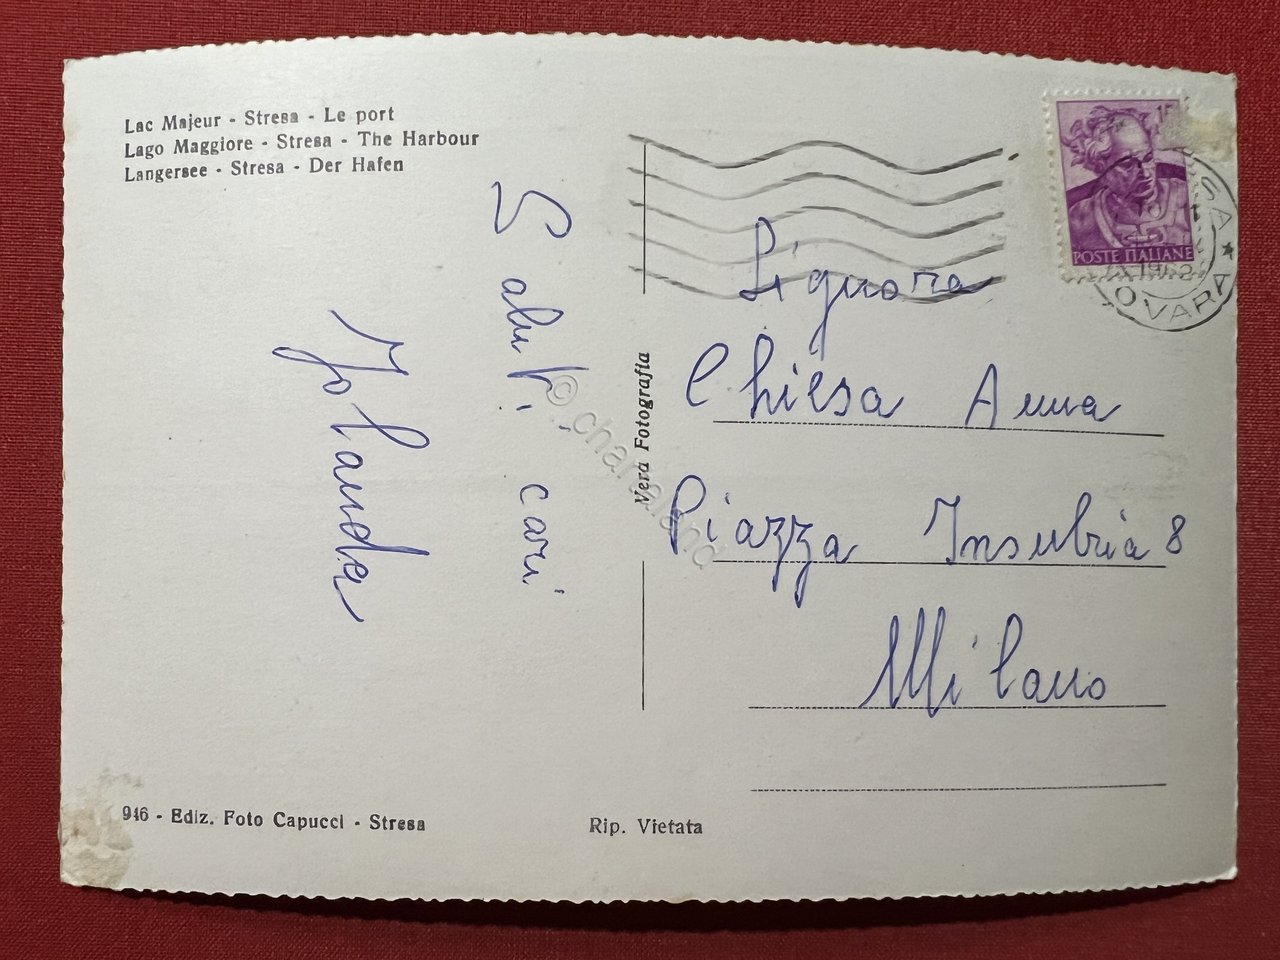 Lac Majeur - Stresa - Le port
Lago Maggiore - Stresa - The Harbour
Langersee - Stresa - Der Hafen
Saluti cari
Jolanda
Vera Fotografia
POSTE ITALIANE
Signora
Chiesa Anna
Piazza Insubria 8
Milano
946 - Ediz. Foto Capucci - Stresa
Rip. Vietata
© chartaland